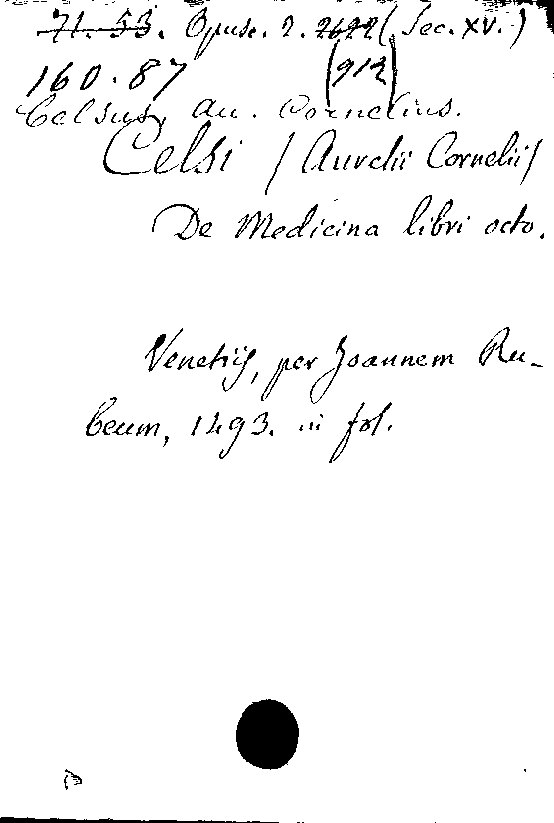 71. 53. Opusc. 2. 2622 (Sec. XV.)
160. 87 (912)
Celsus, Au. Cornelius.
Celsi /Aurelii Cornelii/
De Medicina libri octo.
Venetijs, per Joannem Ru-
beum, 1493. in fol.